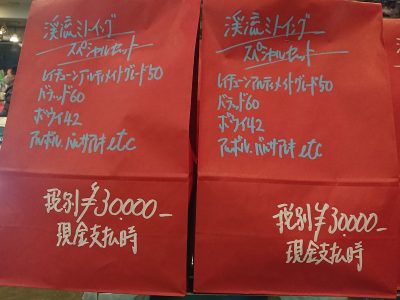 渓流ミトイング
スペシャルセット
レイチューンアルティメイトグレード50
バラッド60
ボウイ42
アルボル、バルサアルキ etc
税別¥30000-
現金支払時
渓流ミトイング
スペシャルセット
レイチューンアルティメイトグレード50
バラッド60
ボウイ42
アルボル、バルサアルキ etc
税別¥30000-
現金支払時